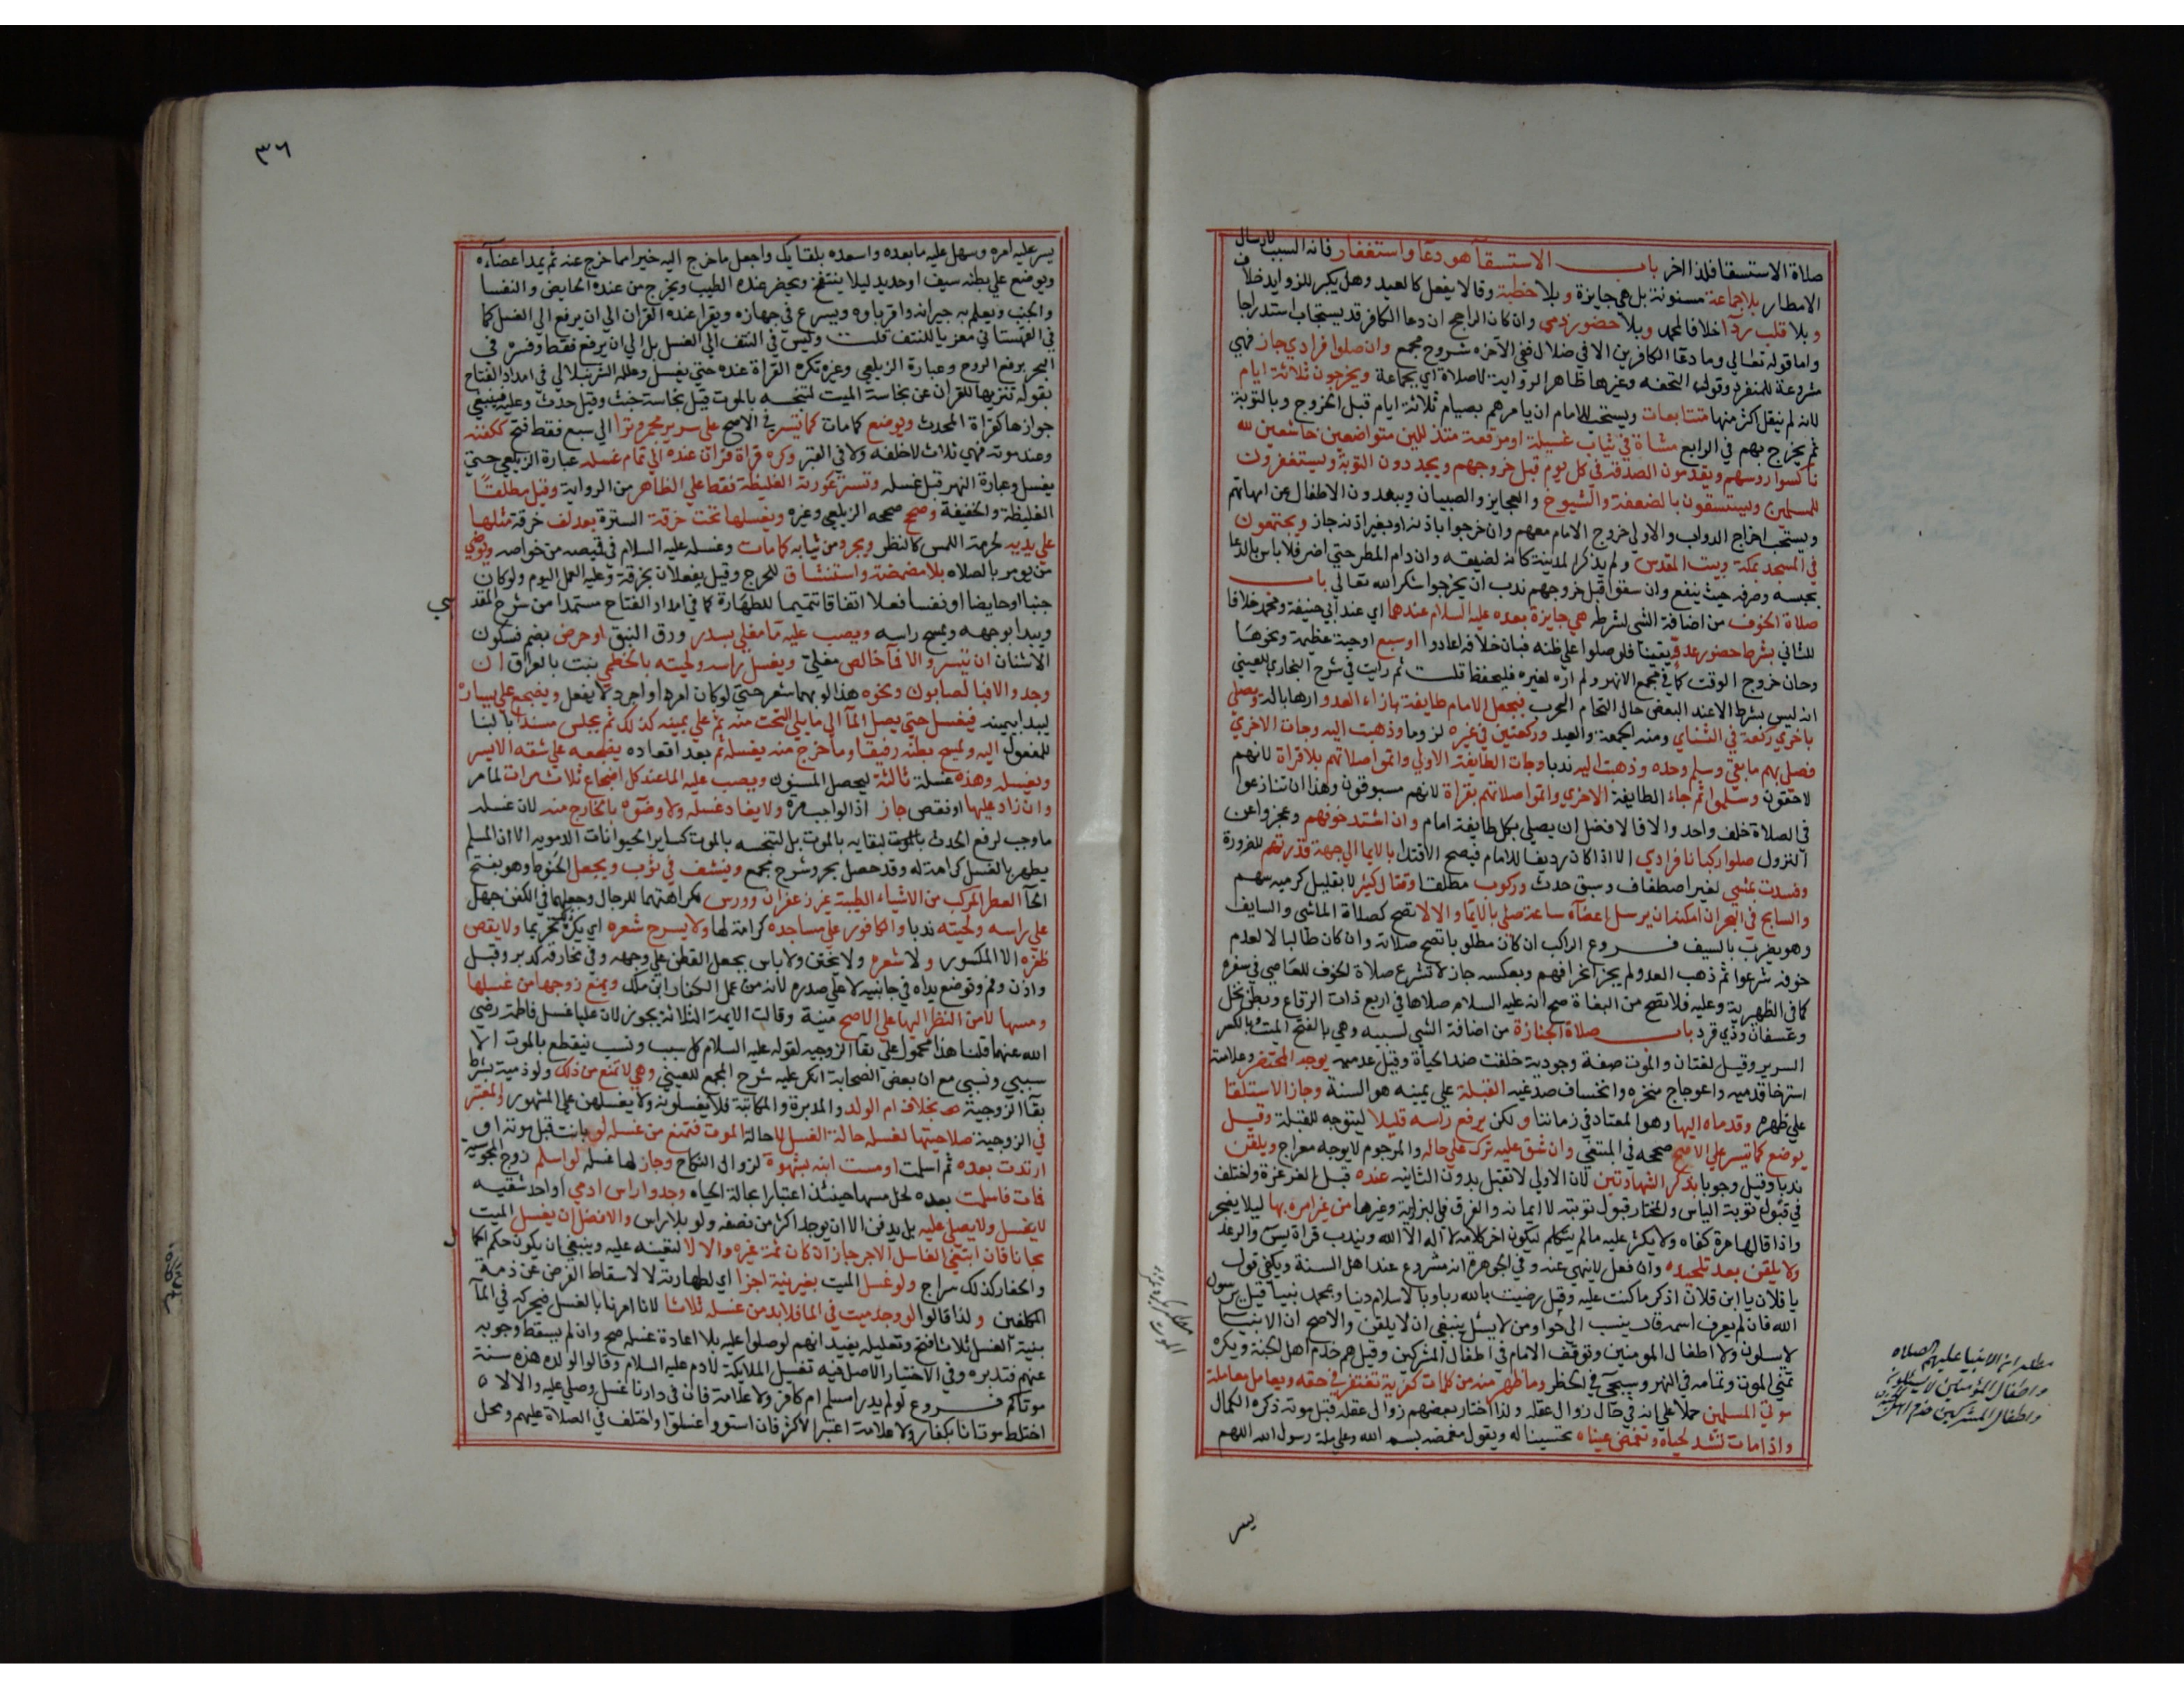 صلاة الاستسقا فلذا اخر باب الاستسقآ هو دعآ واستغفار فانه السبب لارسال
الامطار بلا جماعة مسنونة بل هي جايزة وبلا خطبة وقالا يفعل كالعيد وهل يكبر للزوايد خلاف
وبلا قلب ردآ خلافا لمحمد وبلا حضور ذمي وان كان الراجح ان دعا الكافر قد يستجاب استدراجا
واما قوله تعالي وما دعا الكافرين الا في ضلال ففي الاخره شروح مجمع وان صلوا فرادي جاز فهي
مشروعة للمنفرد وقول التحفه وغيرها ظاهر الرواية لا صلاة اي بجماعة ويخرجون ثلاثة ايام
لانه لم ينقل اكثر منها متتابعات ويستحب للامام ان يامرهم بصيام ثلاثة ايام قبل الخروج وبالتوبة
ثم يخرج بهم في الرابع مشاة في ثياب غسيلة او مرقعة متذللين متواضعين خاشعين لله
ناكسوا روسهم ويقدمون الصدقة في كل يوم قبل خروجهم ويجددون التوبة ويستغفرون
للمسلمين ويستسقون بالضعفة والشيوخ والعجايز والصبيان ويبعدون الاطفال عن امهاتهم
ويستحب اخراج الدواب والاولي خروج الامام معهم وان خرجوا باذنه او بغير اذنه جاز ويجتمعون
في المسجد بمكة وبيت المقدس ولم يذكر المدينة كانه لضيقه وان دام المطر حتي اضر فلا باس بالدعا
بحبسه وصرفه حيث ينفع وان سقوا قبل خروجهم ندب ان يخرجوا شكر الله تعالي باب
صلاة الخوف من اضافة الشي لشرطه هي جايزة بعده عليه السلام عندهما اي عند ابي حنيفة ومحمد خلافا
للثاني بشرط حضور عدو يقينا فلو صلوا علي ظنه فبان خلافه اعادوا او سبع او حية عظيمة ونحوها
وحان خروج الوقت كما في مجمع الانهر ولم اره لغيره فليحفظ قلت ثم رايت في شرح البخاري للعيني
انه ليس بشرط الا عند البعض حال التحام الحرب فيجعل الامام طايفة بازاء العدو ارهابا له ويصلي
باخري ركعة في الثنائي ومنه الجمعة والعيد وركعتين في غيره لزوما وذهبت اليه وجات الاخري
فصلي بهم ما بقي وسلم وحده وذهبت اليه ندبا وجات الطايفة الاولي واتموا صلاتهم بلا قراة لانهم
لاحقون وسلموا ثم جاء الطايفة الاخري واتموا صلاتهم بقراة لانهم مسبوقون وهذا ان تنازعوا
في الصلاة خلف واحد والا فالافضل ان يصلي بكل طايفة امام وان اشتد خوفهم وعجزوا عن
النزول صلوا ركبانا فرادي الا اذا كان رديفا للامام فيصح الاقتدا بالايما الي جهة قدرتهم للضرورة
وفسدت بمشي لغير اصطفاف وسبق حدث وركوب مطلقا وقتال كثير لا بقليل كرميه سهم
والسابح في البحر ان امكنه ان يرسل اعضآه ساعة صلي بالايمآ والا لا تصح كصلاة الماشي والسايف
وهو يضرب بالسيف فروع الراكب ان كان مطلوبا تصح صلاته وان كان طالبا لا لعدم
خوفه شرعوا ثم ذهب العدو لم يجز انحرافهم وبعكسه جاز لا تشرع صلاة الخوف للعاصي في سفره
كما في الظهرية وعليه فلا تصح من البغاة صح انه عليه السلام صلاها في اربع ذات الرقاع وبطن نخل
وعسفان وذي قرد باب صلاة الجنازة من اضافة الشي لسببه وهي بالفتح الميت وبالكسر
السرير وقيل لغتان والموت صفة وجودية خلقت ضد الحياة وقيل عدميه يوجه المحتضر وعلامته
استرخا قدميه واعوجاج منخره وانخساف صدغيه القبلة علي يمينه هو السنة وجاز الاستلقا
علي ظهره وقدماه اليها وهو المعتاد في زماننا ولكن يرفع راسه قليلا ليتوجه للقبلة وقيل
يوضع كما تيسر علي الاصح صححه في المبتغي وان شق عليه ترك علي حاله والمرجوم لا يوجه معراج ويلقن
ندبا وقيل وجوبا بذكر الشهادتين لان الاولي لا تقبل بدون الثانيه عنده قبل الغرغرة واختلف
في قبول توبة الياس والمختار قبول توبته لا ايمانه والفرق في البزازية وغيرها من غير امره بها ليلا يضجر
واذا قالها مرة كفاه ولا يكرر عليه ما لم يتكلم ليكون اخر كلامه لا اله الا الله ويندب قراة يسٓ والرعد
ولا يلقن بعد تلحيده وان فعل لا ينهي عنه وفي الجوهرة انه مشروع عند اهل السنة ويكفي قول
يا فلان يا ابن فلان اذكر ما كنت عليه وقل رضيت بالله ربا وبالاسلام دينا وبمحمد نبيا قيل يرسول
الله فان لم يعرف اسمه قال ينسب الي حوا ومن لا يسئل ينبغي ان لا يلقن والاصح ان الانبيا
لا يسلون ولا اطفال المومنين وتوقف الامام في اطفال المشركين وقيل هم خدم اهل الجنة ويكره
تمني الموت وتمامه في النهر وسيجي في الحظر وما ظهر منه من كلمات كفرية تغتفر في حقه ويعامل معاملة
موتي المسلمين حملا علي انه في حال زوال عقله ولذا اختار بعضهم زوال عقله قبل موته ذكره الكمال
واذا مات تشد لحياه وتغمض عيناه تحسينا له ويقول مغمضه بسم الله وعلي ملة رسول الله اللهم
يسر
مطلب ان الانبيا عليهم الصلاه
واطفال المؤمنين لا يسئلون
واطفال المشركين خدم اهل الجنة
٣٦
يسر عليه امره وسهل عليه ما بعده واسعده بلقايك واجعل ما خرج اليه خيرا مما خرج عنه ثم يمد اعضآءه
ويوضع علي بطنه سيف او حديد ليلا ينتفخ ويحضر عنده الطيب ويخرج من عنده الحايض والنفسا
والجنب ويعلم به جيرانه واقرباوه ويسرع في جهازه ويقرا عنده القران الي ان يرفع الي الغسل كما
في القهستاني معزيا للنتف قلت وليس في النتف الي الغسل بل الي ان يرفع فقط وفسره في
البحر برفع الروح وعبارة الزيلعي وغيره تكره القراة عنده حتي يغسل وعلله الشرنبلالي في امداد الفتاح
بقوله تنزيها للقران عن نجاسة الميت لتنجسه بالموت قيل نجاسة خبث وقيل حدث وعليه فينبغي
جوازها كقراة المحدث ويوضع كما مات كما تيسر في الاصح علي سرير مجمر وترا الي سبع فقط فتح ككفنه
وعند موته فهي ثلاث لا خلفه ولا في القبر وكره قراة قران عنده الي تمام غسله عبارة الزيلعي حتي
يغسل وعبارة النهر قبل غسله وتستر عورته الغليظة فقط علي الظاهر من الرواية وقيل مطلقا
الغليظة والخفيفة وصح صححه الزيلعي وغيره ويغسلها تحت خرقة السترة بعد لف خرقة مثلها
علي يديه لحرمة اللمس كالنظر ويجرد من ثيابه كما مات وغسله عليه السلام في قميصه من خواصه ويوضي
من يومر بالصلاه بلا مضمضة واستنشاق للحرج وقيل يفعلان بخرقة وعليه العمل اليوم ولو كان
جنبا او حايضا او نفسا فعلا اتفاقا تتميما للطهارة كما في امداد الفتاح مستمدا من شرح المقد
سي
ويبدا بوجهه ويمسح راسه ويصب عليه ما مغلي بسدر ورق النبق او حرض بضم فسكون
الاشنان ان تيسر والا فمآ خالص مغلي ويغسل راسه ولحيته بالخطمي نبت بالعراق ان
وجد والا فبالصابون ونحوه هذا لو بهما شعر حتي لو كان امرد او اجرد لا يفعل ويضجع علي يساره
ليبدا بيمينه فيغسل حتي يصل المآ الي ما يلي التخت منه ثم علي يمينه كذلك ثم يجلس مسندا بالبنا
للمفعول اليه ويمسح بطنه رفيقا وما خرج منه يغسله ثم بعد اقعاده يضجعه علي شقه الايسر
ويغسله وهذه غسلة ثالثة ليحصل المسنون ويصب عليه الما عند كل اضجاع ثلاث مرات لما مر
وان زاد عليها او نقص جاز اذ الواجب مرة ولا يعاد غسله ولا وضوه بالخارج منه لان غسله
ما وجب لرفع الحدث بالموت لبقايه بالموت بل لتنجسه بالموت كساير الحيوانات الدمويه الا ان المسلم
يطهر بالغسل كرامة له وقد حصل بحر وشرح مجمع وينشف في ثوب ويجعل الحنوط وهو بفتح
الحآ العطر المركب من الاشياء الطيبة غير زعفران وورس لكراهتهما للرجال وجعلهما في الكفن جهل
علي راسه ولحيته ندبا والكافور علي مساجده كرامة لها ولا يسرح شعره اي يكره تحريما ولا يقص
ظفره الا المكسور ولا شعره ولا يختن ولا باس بجعل القطن علي وجهه وفي مخارقه كدبر وقبل
واذن وفم وتوضع يداه في جانبيه لا علي صدره لانه من عمل الكفار ابن ملك ويمنع زوجها من غسلها
ومسها لا من النظر اليها علي الاصح منية وقالت الايمة الثلاثة يجوز لان عليا غسل فاطمة رضي
الله عنهما قلنا هذا محمول علي بقا الزوجيه لقوله عليه السلام كل سبب ونسب ينقطع بالموت الا
سببي ونسبي مع ان بعض الصحابة انكر عليه شرح المجمع للعيني وهي لا تمنع من ذلك ولو ذمية بشرط
بقآ الزوجية بخلاف ام الولد والمدبرة والمكاتبة فلا يغسلونه ولا يغسلهن علي المشهور والمعتبر
في الزوجية صلاحيتها لغسله حالة الغسل لا حالة الموت فتمنع من غسله لو بانت قبل موته او
ارتدت بعده ثم اسلمت او مست ابنه بشهوة لزوال النكاح وجاز لها غسله لو اسلم زوج المجوسية
فمات فاسلمت بعده لحل مسها حينئذ اعتبارا بحالة الحياه وجد راس ادمي او احد شقيه
لا يغسل ولا يصلي عليه بل يدفن الا ان يوجد اكثر من نصفه ولو بلا راس والافضل ان يغسل الميت
مجانا فان ابتغي الغاسل الاجر جاز ان كان ثمة غيره والا لا لتعينه عليه وينبغي ان يكون حكم الحما
ل
والحفار كذلك سراج ولو غسل الميت بغير نية اجزا اي لطهارته لا لاسقاط الفرض عن ذمة
المكلفين ولذا قالوا لو وجد ميت في الما فلا بد من غسله ثلاثا لانا امرنا بالغسل فيحركه في المآ
بنية الغسل ثلاثا فتح وتعليله يفيد انهم لو صلوا عليه بلا اعادة غسله صح وان لم يسقط وجوبه
عنهم فتدبره وفي الاختيار الاصل فيه تغسيل الملايكة لادم عليه السلام وقالوا لولده هذه سنة
موتاكم فروع لو لم يدر امسلم ام كافر ولا علامة فان في دارنا غسل وصلي عليه والا لا
اختلط موتانا بكفار ولا علامة اعتبر الاكثر فان استووا غسلوا واختلف في الصلاة عليهم ومحل